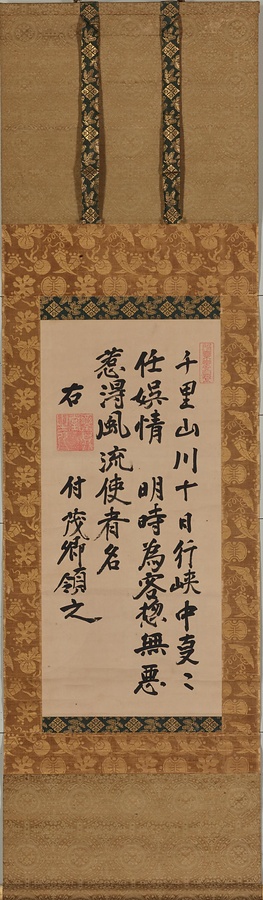 千里山川十日行峽中更〻
任娯情 明時為客摠無悪
惹得風流使者名
右 付茂卿領之